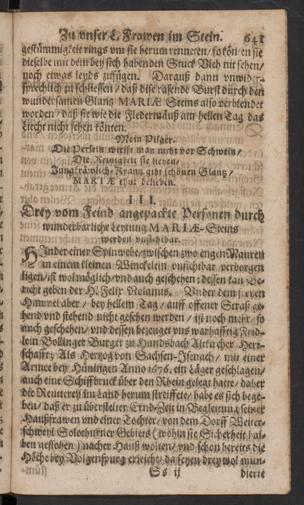 Zu vnser L. Frawen im Stein. 641
gestümmigkeit rings vm sie herum renneten, so kön en sie
dieselbe mit dem bey sich habenden Stuck Vieh nit sehen/
noch etwas leyds zufügen. Darauß dann vnwider-
sprechlich zu schliessen/ daß dise rasende Burst durch den
wundersamen Glantz MARIÆ Steins also verblendet
worden/ daß sie wie die Fledermäuß am hellen Tag das
Liecht nicht sehen können.
Mein Pilger.
Die Perlein wirfft man nicht vor Schwein/
Die Reinigkeit sie lieben/
Jungfräwlich-Krantz gibt schönen Glantz/
MARIÆ thut belieben.
III.
Drey vom Feind angepackte Personen durch
wunderbarliche Leytung MARIÆ-Steins
werden vnsichtbar.
Hinder einer Spinwebe/ zwischen zwo engen Mauren
an einem kleinen Winckelein vnsichtbar verborgen
ligen/ ist wol möglich/ vnd auch geschehen; dessen kan Be-
richt geben der H. Felix Nolanus. Vnder dem freyen
Himmel aber/ bey hellem Tag/ auff offener Straß ge
hend vnd stehend nicht gesehen werden/ ist noch mehr/ so
auch geschehen/ vnd dessen bezeuget vns warhafftig
lein Bollinger Burger zu Hundsbach Altkircher Herr-
schafft; Als Hertzog von Sachsen-Isenach/ mit einer
Armee bey Hüningen Anno 1676. ein Läger geschlagen/
auch eine Schiffbruck über den Rhein gelegt hatte/ daher
die Reuterey im Land herum streiffete/ habe es sich bege-
ben/ daß er zu überstelter Ernd-Zeit in Begleitung seiner
Haußfrawen vnd einer Tochter/ von dem Dorff
schweyl Solothurner Gebiets (wohin sie Sicherheit hal-
ben geflohen) nacher Hauß wolten/ vnd schon bereits die
Höche bey Volgenspurg erreicht/ da seyen drey wol mun-
Ss ij dierte